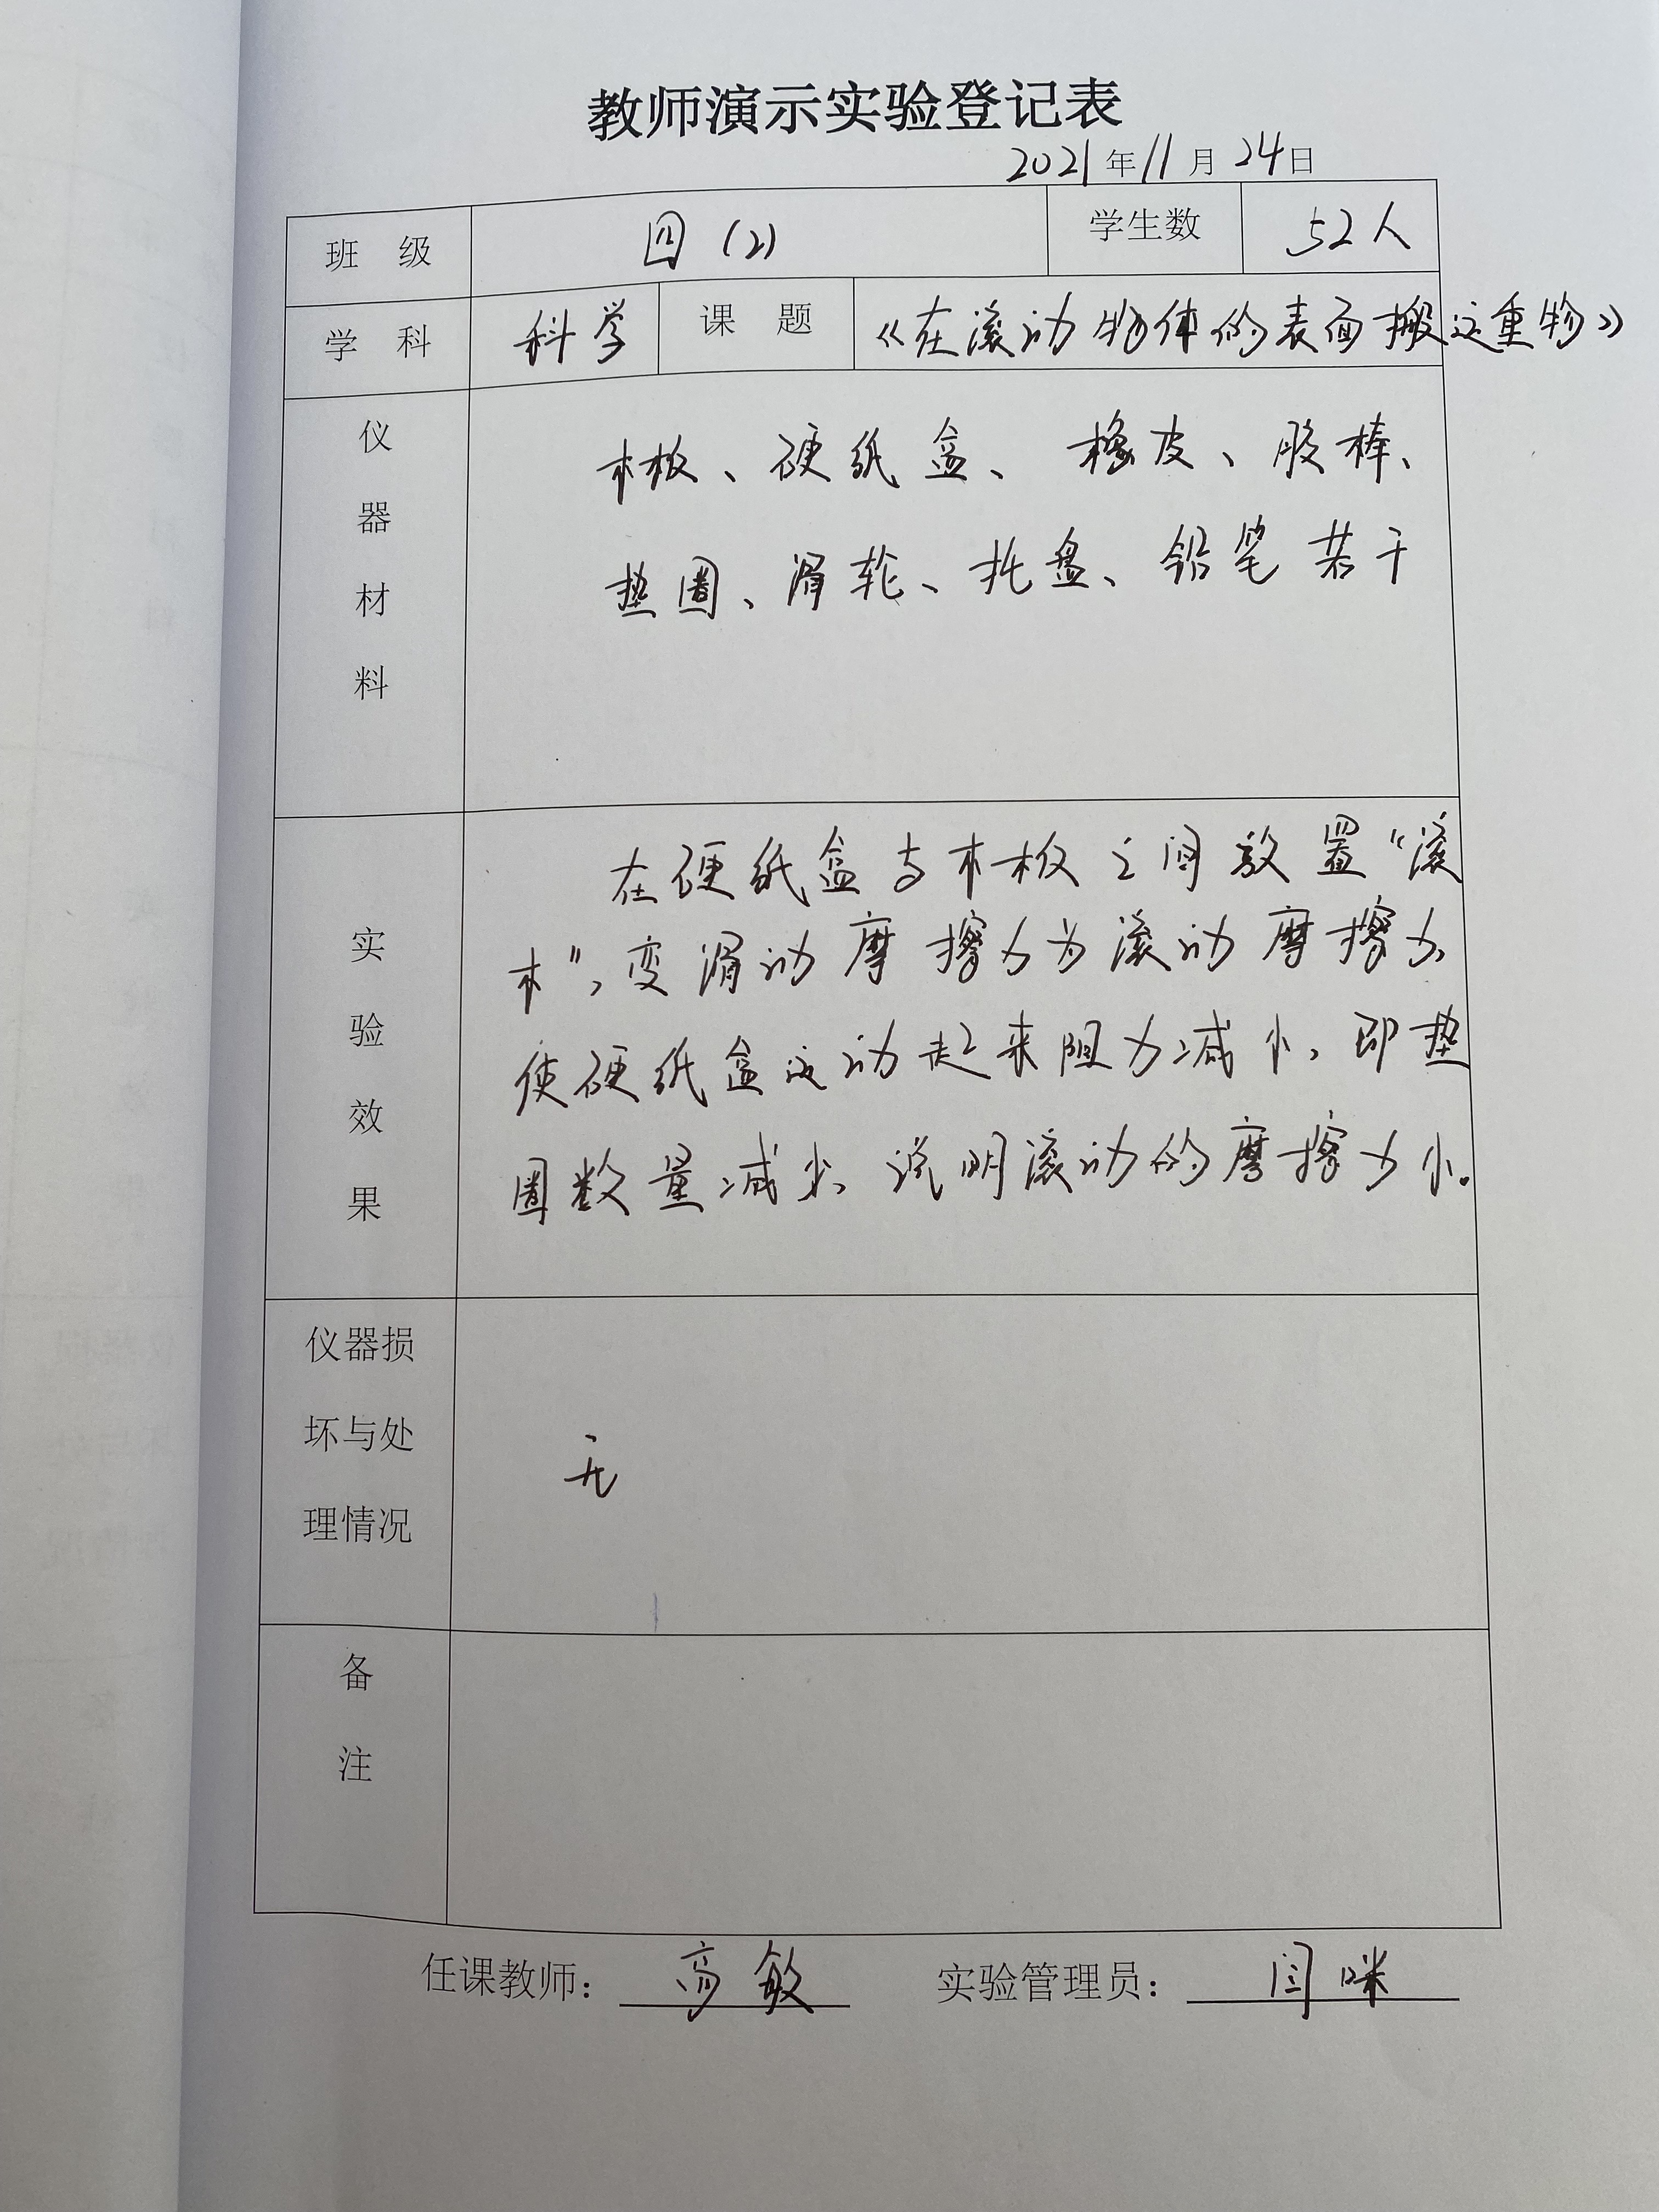 教师演示实验登记表
2021年11月24日
班 级 四(2) 学生数 52人
学 科 科学 课 题 《在滚动物体的表面搬运重物》
仪器材料
木板、硬纸盒、橡皮、胶棒、
垫圈、滑轮、托盘、铅笔若干
实验效果
在硬纸盒与木板之间放置“滚
木”,变滑动摩擦力为滚动摩擦力,
使硬纸盒运动起来阻力减小,即垫
圈数量减少,说明滚动的摩擦力小。
仪器损
坏与处
理情况
无
备注
任课教师: 高敏 实验管理员: 闫咪